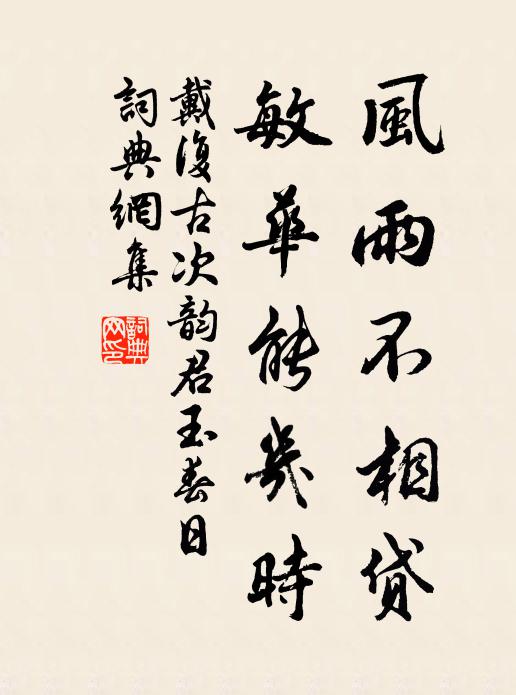 風雨不相貸
敏華能幾時
戴復古次韵君玉春日
詞典網集
詞典網印